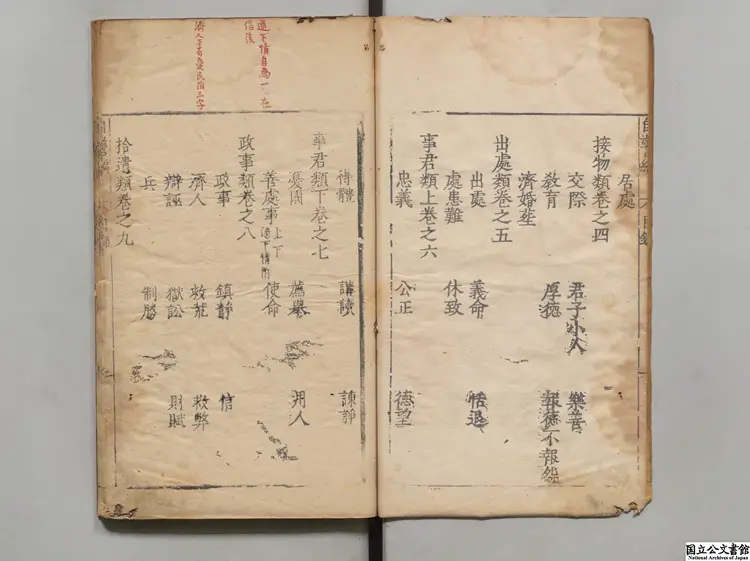 居處
接物類卷之四
交際 君子小人 樂善
教育 厚德 報德不報怨
濟婚葬
出處類卷之五
出處 義命 恬退
處患難 休致
事君類上卷之六
忠義 公正 德望
得體 講讀 諫諍
事君類下卷之七
憂國 薦舉 用人
善處事上下 使命
政事類卷之八
政事 鎮靜 信
濟人 救荒 救弊
辯誣 獄訟 財賦
兵 制勝
拾遺類卷之九
国立公文書館
National Archives of Japan